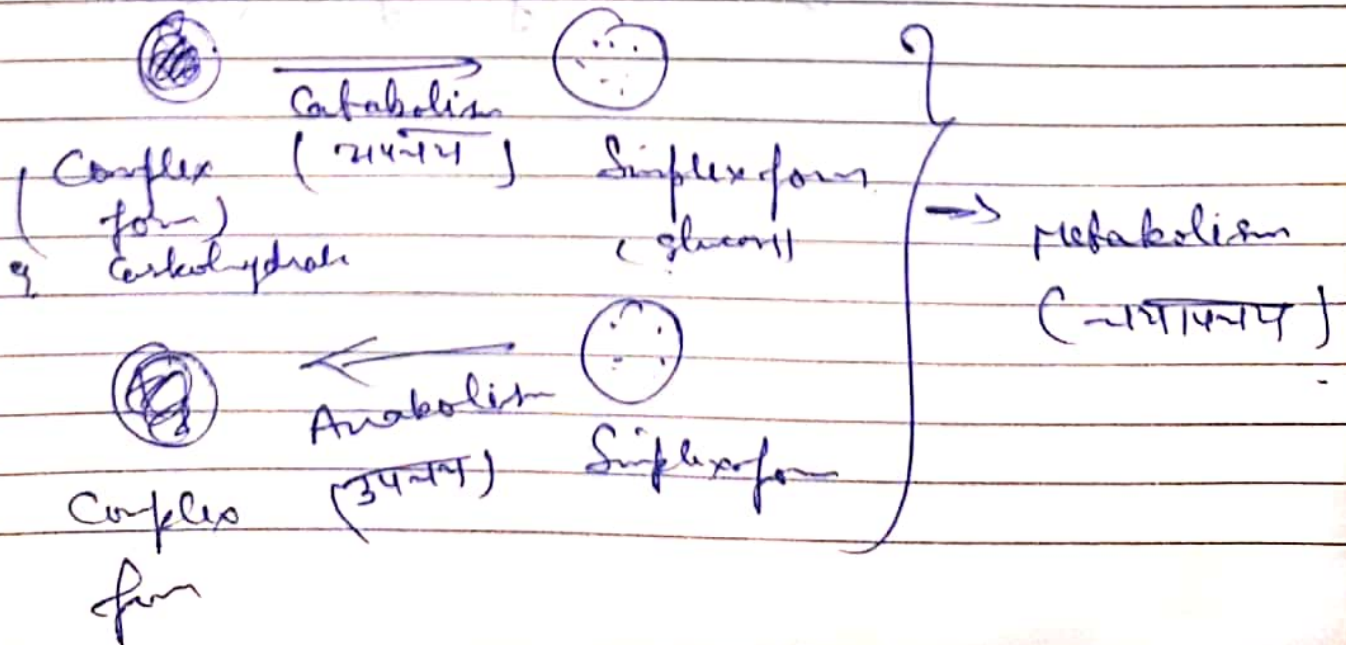 Catabolism
(अपचय)
(Complex
form)
eg Carbohydrate
Simplex form
(glucose)
→ Metabolism
(चयापचय)
Anabolism
(उपचय)
Complex
form
Simplex form